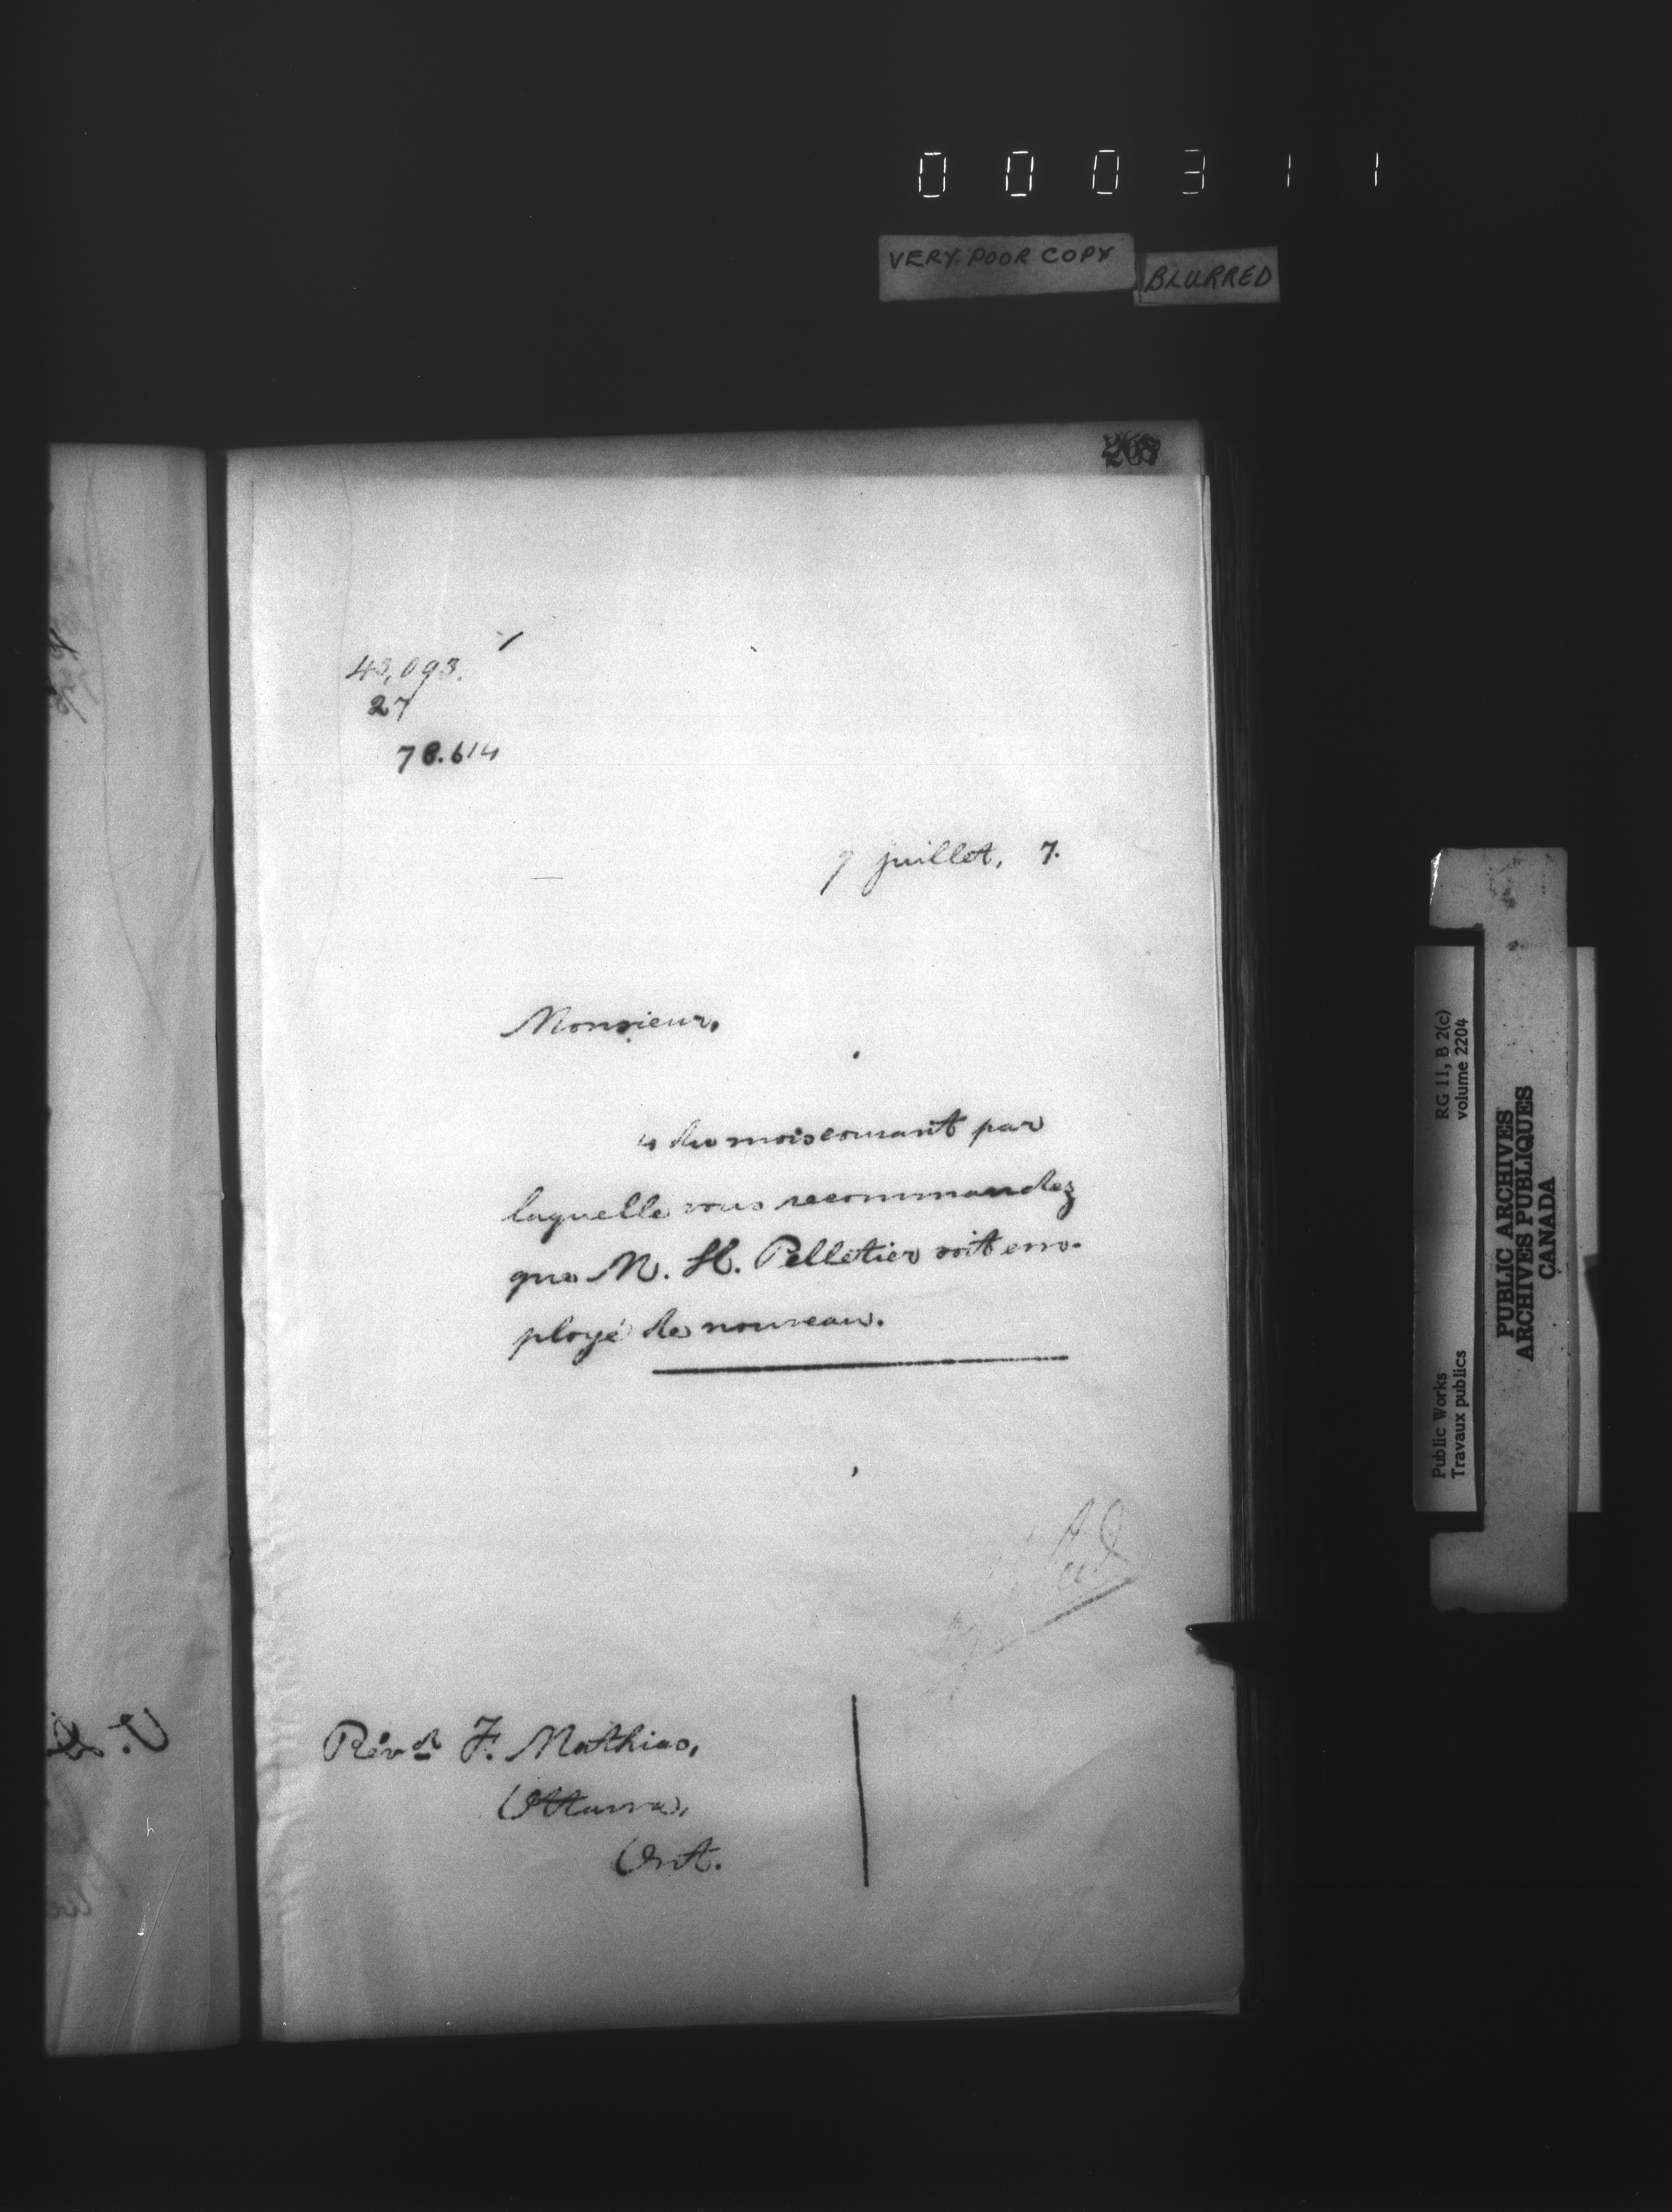 000311
VERY POOR COPY
BLURRED
43,093.
27
78.614
9 juillet, 7.
Monsieur,
4 du mois courant par
laquelle vous recommandez
que M. H. Pelletier soit em-
ployé de nouveau.
Révd F. Mathias,
Ottawa,
Ont.
Public Works
Travaux publics
RG 11, B 2(c)
volume 2204
PUBLIC ARCHIVES
ARCHIVES PUBLIQUES
CANADA